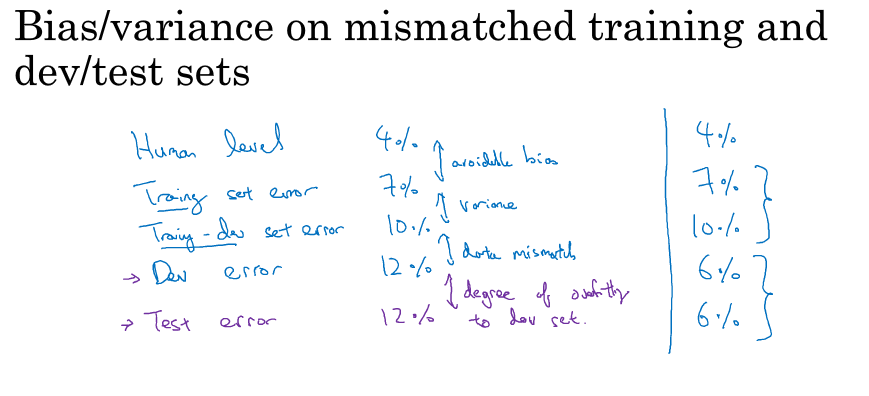 Bias/variance on mismatched training and
dev/test sets
Human level 4% 4%
avoidable bias
Traing set error 7% 7%
variance
Traiy-dev set error 10% 10%
data mismatch
→ Dev error 12% 6%
degree of overfitting
→ Test error 12% to dev set. 6%